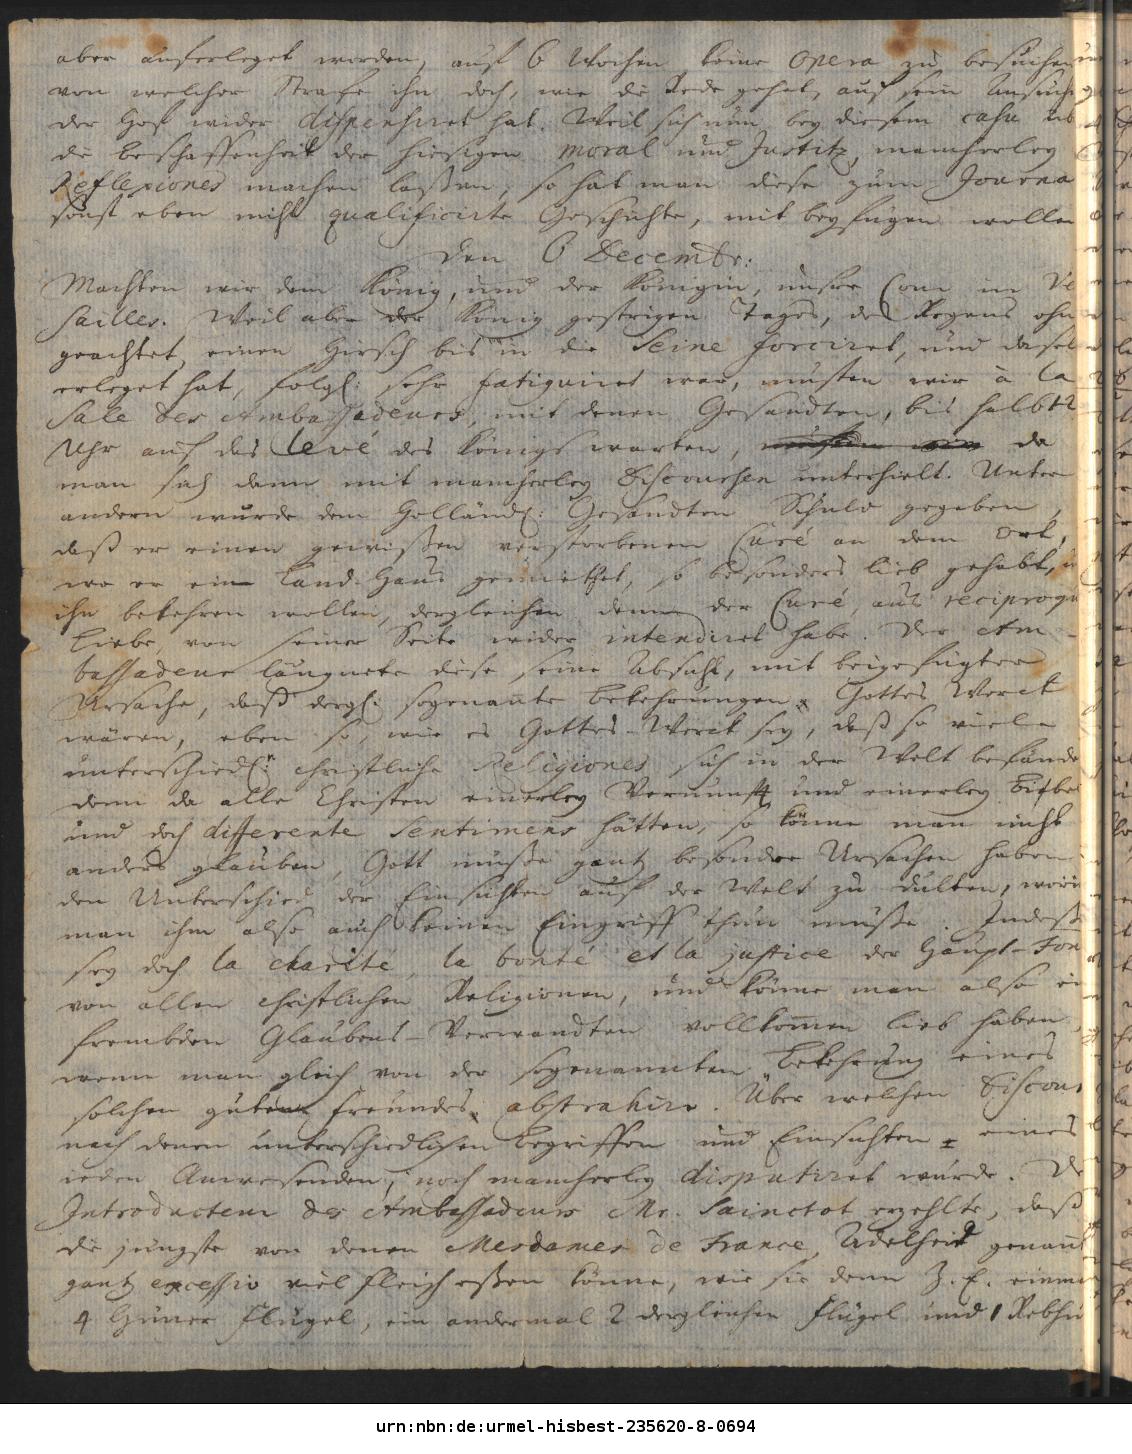 aber auferleget worden, auf 6 Wochen keine Opera zu besuchen
von welcher Strafe ihn doch, wie die Rede gehet, auf sein Ansuchen
der Hof wider dispensiret hat. Weil sich nun bey diesem casu
die beschaffenheit der hiesigen moral und Justitz, mancherley
Reflexiones machen laßen, so hat man diese zum Journa
sonst eben nicht qualificirte Geschichte, mit beyfügen wollen
den 6 Decembr:
Machten wir dem König, und der Königin, unsre Cour in Ve
sailles. Weil aber der König gestrigen Tages, des Regens ohn
geachtet, einen Hirsch bis in die Seine forciret, und dasel
erleget hat, folgl: sehr fatiguiret war, musten wir à la
Sale des Ambassadeurs, mit denen Gesandten, bis halb
Uhr auf das Levé des Königs warten, da
man sich dann mit mancherley Discoursen unterhielt. Unter
andern wurde dem Holländ: Gesandten Schuld gegeben,
daß er einen gewißen verstorbenen Curé an dem Ort,
wo er ein Land-Haus gemiethet, so besonders lieb gehabt,
ihn bekehren wollen, dergleichen denn der Curé, aus reciproqu
Liebe, von seiner Seite wider intendiret habe. Der Am-
bassadeur läugnete diese seine Absicht, mit beigefügter
Ursache, daß dergl: sogenante bekehrungen Gottes Werck
wären, eben so, wie es Gottes-Werck sey, daß so viele
unterschiedl: christliche Religiones sich in der Welt befände
denn da alle Christen einerley Vernunft und einerley Bibel
und doch differente Sentimens hätten, so könne man nicht
anders glauben, Gott müße gantz besondre Ursachen haben
den Unterschied der Einsichten auf der Welt zu dulten, worin
man ihm also auch keinen Eingriff thun müße. Indeß
sey doch la charité, la bonté et la justice der Haupt-Fon
von allen christlichen Religionen, und könne man also ei
frembden Glaubens-Verwandten vollkomen lieb haben,
wenn man gleich von der sogenannten bekehrung eines
solchen guten freundes abstrahire. Über welchen Discour
nach denen unterschiedlichen begriffen und Einsichten eines
ieden Anwesenden, noch mancherley disputiret wurde. De
Introducteur des Ambassadeurs Mr. Sainctot erzehlte, daß
die jüngste von denen Mesdames de France, Adelheid genannt
gantz excessiv viel fleisch eßen könne, wie sie denn Z. E. einma
4 Hüner Flügel, ein andermal 2 dergleichen Flügel und 1 Rebhu
urn:nbn:de:urmel-hisbest-235620-8-0694